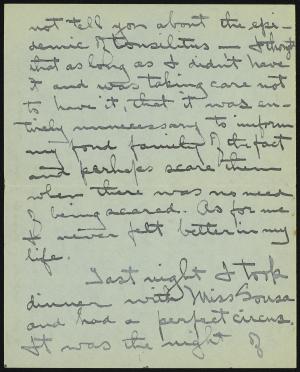 not tell you about the epi-
demic of tonsilitus — I thought
that as long as I didn't have
it and was taking care not
to have it, that it was en-
tirely unnecessary to inform
my fond family of the fact
and perhaps scare them
when there was no need
of being scared. As for me
I never felt better in my
life.
Last night I took
dinner with Miss Sousa
and had a perfect circus.
It was the night of